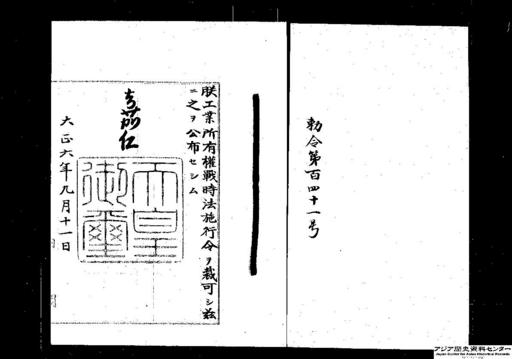 勅令第百四十一号
朕工業所有權戰時法施行令ヲ裁可シ玆
ニ之ヲ公布セシム
嘉仁
天皇
御璽
大正六年九月十一日
アジア歴史資料センター
Japan Center for Asian Historical Records